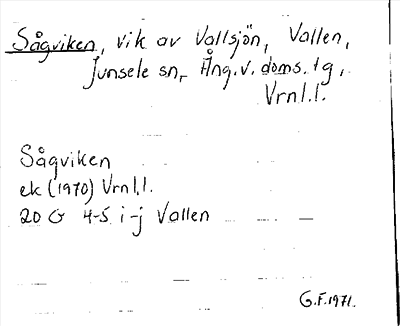 Sågviken, vik av Vallsjön, Vallen,
Junsele sn, Ång.v. doms. tg,
Vrnl.l.
Sågviken
ek (1970) Vrnl.l.
20 G 4-5 i-j Vallen
G.F. 1971.